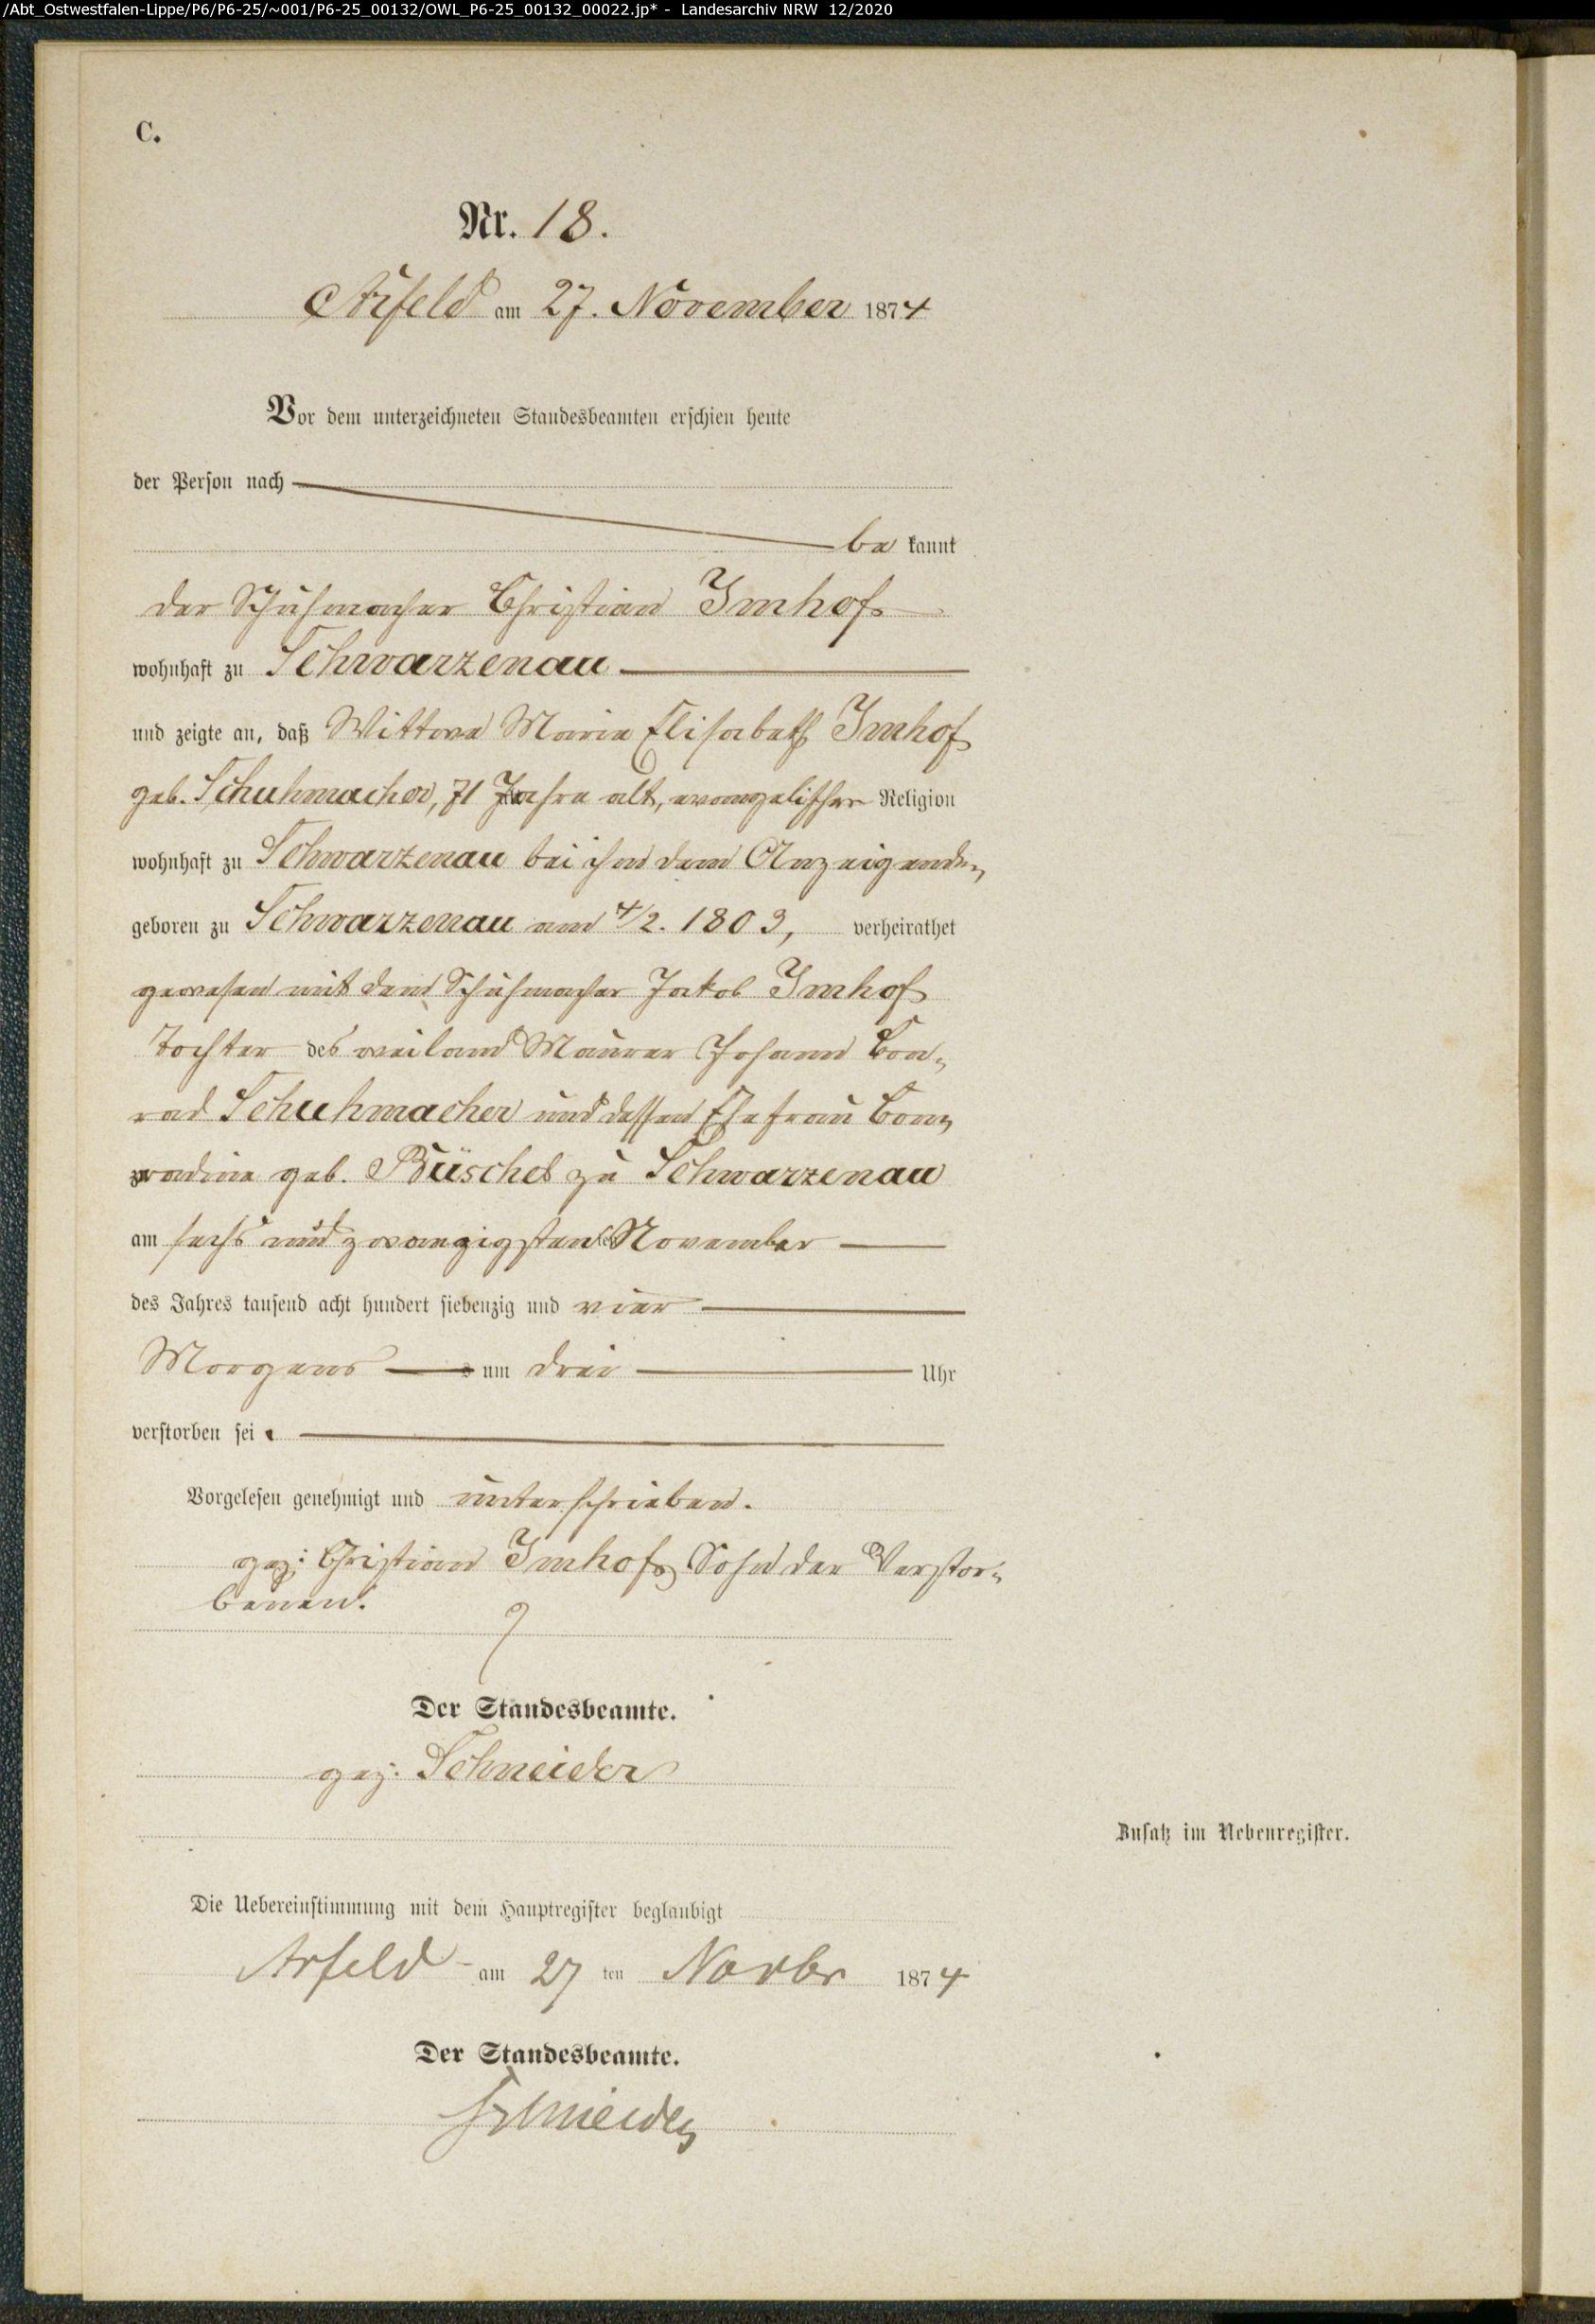 /Abt_Ostwestfalen-Lippe/P6/P6-25/~001/P6-25_00132/OWL_P6-25_00132_00022.jp* - Landesarchiv NRW 12/2020
C.
Nr. 18.
Arfeld am 27. November 1874
Vor dem unterzeichneten Standesbeamten erschien heute
der Person nach
be kannt
der Schuhmacher Christian Imhof
wohnhaft zu Schwarzenau
und zeigte an, daß Wittwe Maria Elisabeth Imhof
geb. Schuhmacher, 71 Jahre alt, evangelischer Religion
wohnhaft zu Schwarzenau bei ihm dem Anzeigenden,
geboren zu Schwarzenau am 4/2. 1803, verheirathet
gewesen mit dem Schuhmacher Jakob Imhof
Tochter des weiland Maurer Johann Con-
rad Schuhmacher und dessen Ehefrau Con-
radine geb. Büschel zu Schwarzenau
am sechs und zwanzigsten November
des Jahres tausend acht hundert siebenzig und vier
Morgens um drei Uhr
verstorben sei.
Vorgelesen genehmigt und unterschrieben.
gez: Christian Imhof, Sohn der Verstor-
benen.
Der Standesbeamte.
gez. Schneider
Zusatz im Nebenregister.
Die Uebereinstimmung mit dem Hauptregister beglaubigt
Arfeld am 27 ten Novbr 1874
Der Standesbeamte.
Schneider